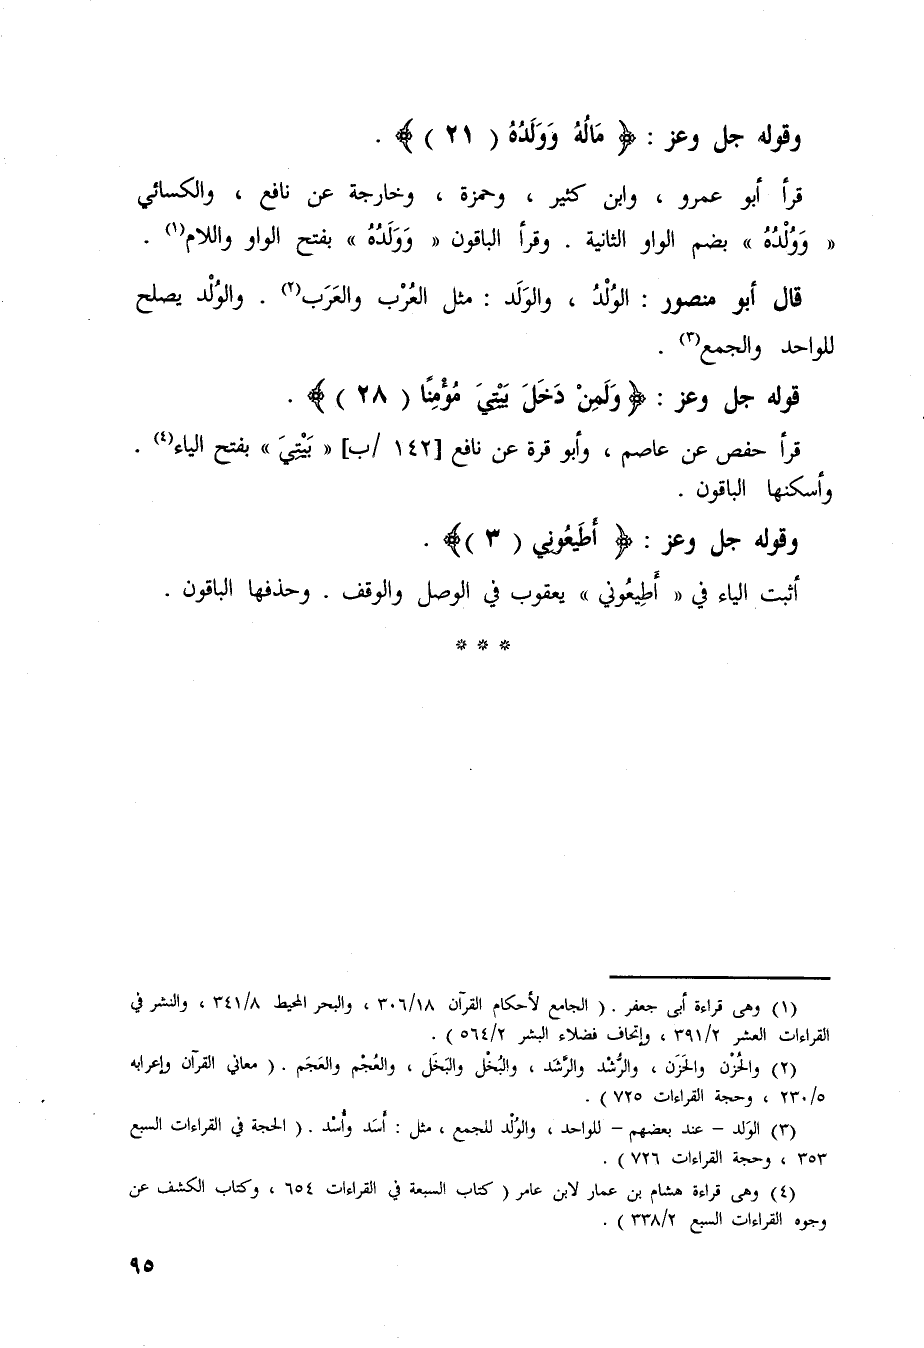 وقوله جل وعز : ﴿ مَالُهُ وَوَلَدُهُ ( ٢١ ) ﴾ .
قرأ أبو عمرو ، وابن كثير ، وحمزة ، وخارجة عن نافع ، والكسائي
« وَوُلْدُهُ » بضم الواو الثانية . وقرأ الباقون « وَوَلَدُهُ » بفتح الواو واللام(١) .
قال أبو منصور : الوُلْدُ ، والوَلَد : مثل العُرْب والعَرَب(٢) . والوُلْد يصلح
للواحد والجمع(٣) .
قوله جل وعز : ﴿ وَلَمِنْ دَخَلَ بَيْتِيَ مُؤْمِنًا ( ٢٨ ) ﴾ .
قرأ حفص عن عاصم ، وأبو قرة عن نافع [١٤٢ /ب] « بَيْتِيَ » بفتح الياء(٤) .
وأسكنها الباقون .
وقوله جل وعز : ﴿ أَطِيعُونِي ( ٣ )﴾ .
أثبت الياء في « أَطِيعُوني » يعقوب في الوصل والوقف . وحذفها الباقون .
* * *
(١) وهى قراءة أبى جعفر . ( الجامع لأحكام القرآن ٣٠٦/١٨ ، والبحر المحيط ٣٤١/٨ ، والنشر في
القراءات العشر ٣٩١/٢ ، وإتحاف فضلاء البشر ٥٦٤/٢ ) .
(٢) والحُزْن والحَزَن ، والرُّشْد والرَّشَد ، والبُخْل والبَخَل ، والعُجْم والعَجَم . ( معاني القرآن وإعرابه
٢٣٠/٥ ، وحجة القراءات ٧٢٥ ) .
(٣) الوَلد – عند بعضهم – للواحد ، والوُلْد للجمع ، مثل : أَسَد وأُسْد . ( الحجة في القراءات السبع
٣٥٣ ، وحجة القراءات ٧٢٦ ) .
(٤) وهى قراءة هشام بن عمار لابن عامر ( كتاب السبعة في القراءات ٦٥٤ ، وكتاب الكشف عن
وجوه القراءات السبع ٣٣٨/٢ ) .
٩٥